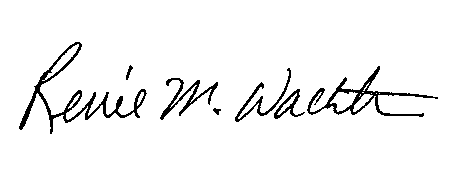 Renée M. Wachter